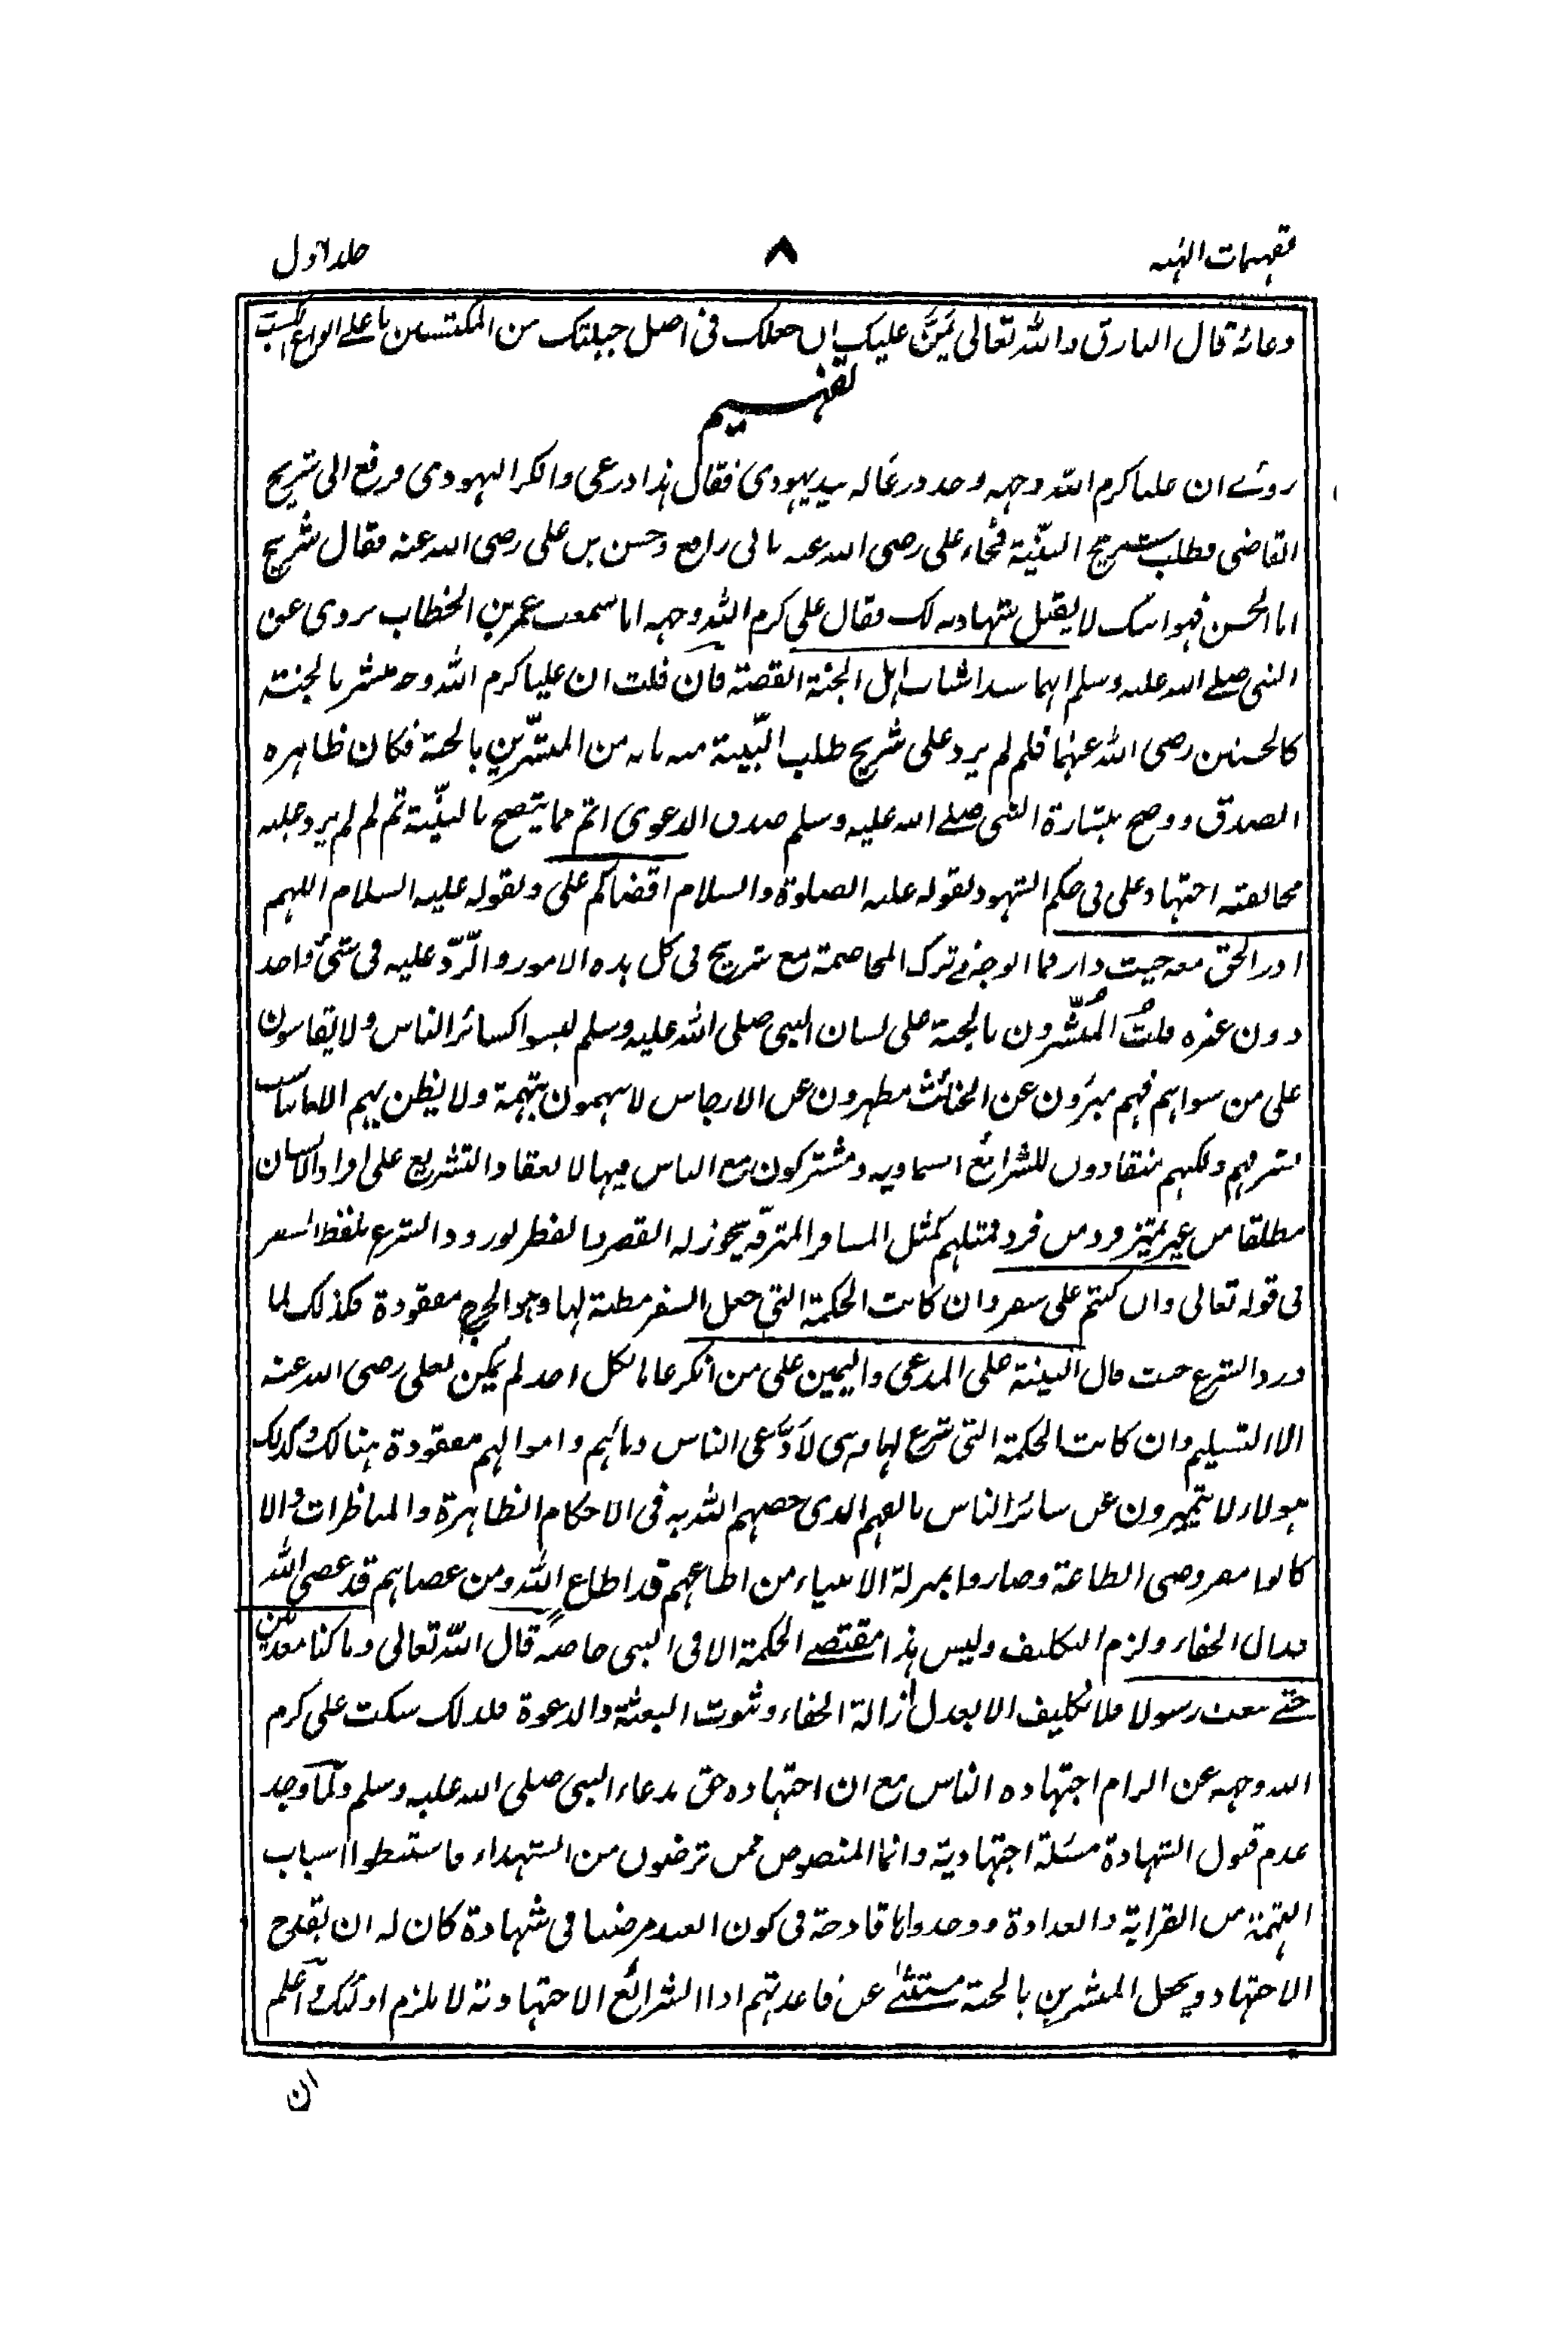 تفہیمات الہیہ ۸ جلد اول
دعائہ قال البارق واللہ تعالی یَمُنَّ علیک ان جعلک فی اصل جبلتک من المکتسبین باعلے انواع الکسب
تفہیم
روے ان علیا کرم اللہ وجہہ وجد درعا لہ بید یہودی فقال ہذا درعی وانکر الیہودی فرفع الی شریح
القاضی فطلب شریح البیّنۃ فجاء علی رضی اللہ عنہ بابی رافع وحسن بن علی رضی اللہ عنہ فقال شریح
اما الحسن فہو ابنک لا یقبل شہادتہ لک فقال علی کرم اللہ وجہہ اما سمعت عمر بن الخطاب یروی عن
النبی صلے اللہ علیہ وسلم انہما سیدا شباب اہل الجنۃ القصۃ فان قلت ان علیا کرم اللہ وجہہ مبشر بالجنۃ
کالحسنین رضی اللہ عنہما فلم لم یرد علی شریح طلب البّینۃ منہ بانہ من المبشّرین بالجنۃ فکان ظاہرہ
الصدق ووضح ببشارۃ النبی صلے اللہ علیہ وسلم صدق الدعوی اتم مما یتضح بالبیّنۃ ثم لم لم یرد علیہ
مخالفتہ اجتہاد علی فی حکم الشہود لقولہ علیہ الصلوۃ والسلام اقضاکم علی ولقولہ علیہ السلام اللہم
ادر الحق معہ حیث دار فما الوجہ فے ترک المخاصمۃ مع شریح فی کل ہذہ الامور والرّدّ علیہ فی شئ واحد
دون غیرہ قلتُ المُبشّرون بالجنۃ علی لسان النبی صلی اللہ علیہ وسلم لیسوا کسائر الناس ولا یقاسون
علی من سواہم فہم مبرؤن عن الخبائث مطہرون عن الارجاس لا یتہمون بتہمۃ ولا یظن بہم الا ما یناسب
شرفہم ولکنہم منقادون للشرائع السماویہ ومشترکون مع الناس فیہا لانعقاد التشریع علی افراد الانسان
مطلقا من غیر تمیز فرد من فرد فمثلہم کمثل المسافر المترفّہ یجوز لہ القصر والفطر لورود الشرع بلفظ السفر
فی قولہ تعالی وان کنتم علی سفر وان کانت الحکمۃ التی جعل السفر مظنۃ لہا وہو الحرج مفقودۃ فکذلک لما
ورد الشرع حیث قال البینۃ علی المدعی والیمین علی من انکر عاما لکل احد لم یکن لعلی رضی اللہ عنہ
الا التسلیم وان کانت الحکمۃ التی شرع لہا وہی لادَّعی الناس دمائہم واموالہم مفقودۃ ہنالک وکذلک
ہولاء لا یتمیزون عن سائر الناس بالفہم الذی خصہم اللہ بہ فی الاحکام الظاہرۃ والمناظرات والا
کانوا مفروضی الطاعۃ وصاروا بمنزلۃ الانبیاء من اطاعہم قد اطاع اللہ ومن عصاہم قد عصی اللہ
فزال الخفاء ولزم التکلیف ولیس ہذا مقتضے الحکمۃ الا فی النبی خاصۃ قال اللہ تعالی وما کنا معذبین
حتے نبعث رسولا فلا تکلیف الا بعد ازالۃ الخفاء وثبوت البعثۃ والدعوۃ فلذلک سکت علی کرم
اللہ وجہہ عن الزام اجتہادہ الناس مع ان اجتہادہ حق بدعاء النبی صلی اللہ علیہ وسلم ولمّا وجد
عدم قبول الشہادۃ مسئلۃ اجتہادیۃ وانما المنصوص ممن ترضون من الشہداء فاستنبطوا اسباب
التہمۃ من القرابۃ والعداوۃ ووجدوا انہا قادحۃ فی کون العبد مرضیا فی شہادۃ کان لہ ان یقدح
الاجتہاد ویجعل المبشرین بالجنۃ مستثنے عن قاعدتہم اذا الشرائع الاجتہادیۃ لا یلزم اولٰئک واعلم
ان